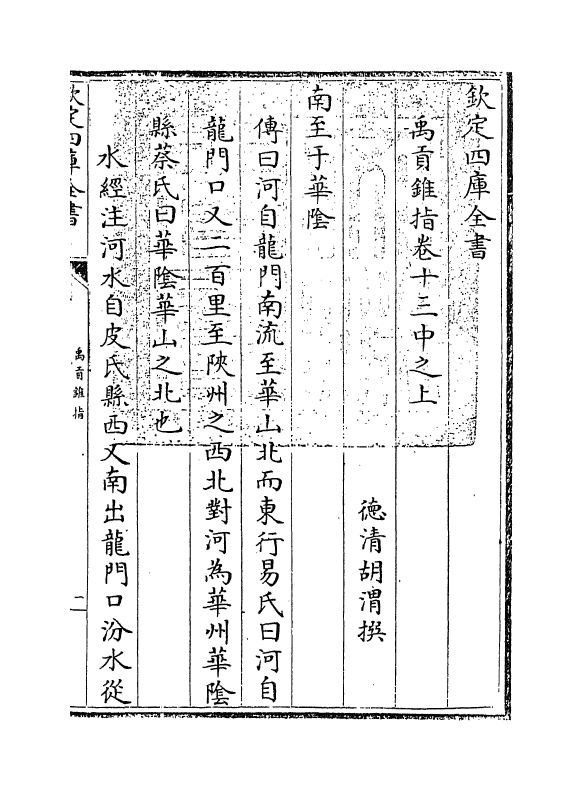 欽定四庫全書
禹貢錐指卷十三中之上
德清胡渭撰
南至于華陰
傳曰河自龍門南流至華山北而東行易氏曰河自
龍門口又二百里至陝州之西北對河為華州華陰
縣蔡氏曰華陰華山之北也
水經注河水自皮氏縣西又南出龍門口汾水從
欽定四庫全書
禹貢錐指